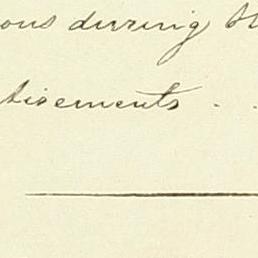 ous during th
tisements . .